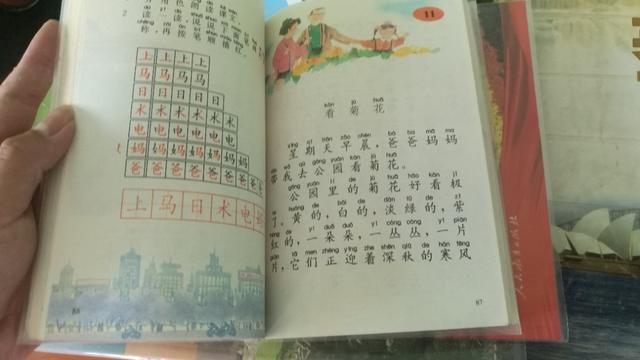 上上上上
马马马马
日日日日日
术术术术术
电电电电电电
妈妈妈妈妈妈妈
爸爸爸爸爸爸爸
上马日术电
88
11
kàn jú huā
看菊花
xīng qī tiān zǎo chén bà ba mā ma
星期天早晨，爸爸妈妈
dài wǒ qù gōng yuán kàn jú huā
带我去公园看菊花。
gōng yuán lǐ de jú huā hǎo kàn jí
公园里的菊花好看极
le huáng de bái de dàn lǜ de zǐ
了。黄的，白的，淡绿的，紫
hóng de yì duǒ duǒ yì cóng cóng yí piàn
红的，一朵朵，一丛丛，一片
piàn tā men zhèng yíng zhe shēn qiū de hán fēng
片，它们正迎着深秋的寒风
87
人民教育出版社